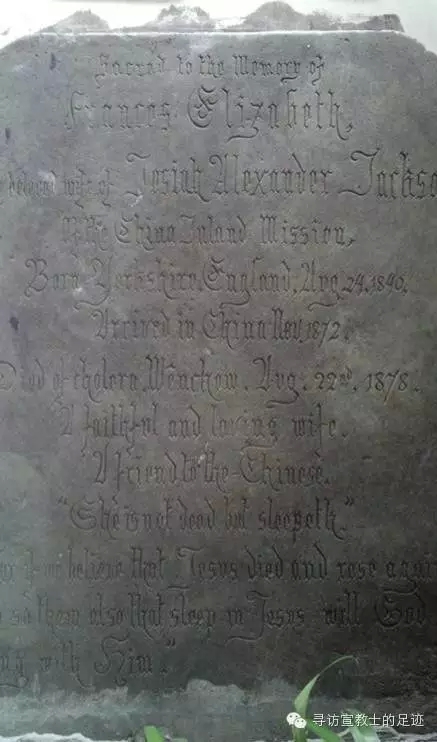 Sacred to the Memory of
Frances Elizabeth,
beloved wife of Josiah Alexander Jackso
Of the China Inland Mission,
Born Yorkshire, England, Aug. 24, 1846.
Arrived in China Nov, 1872.
Died of cholera, Wênchow, Aug. 22nd, 1878.
A faithful and loving wife.
A friend to the Chinese.
"She is not dead but sleepeth."
or if we believe that Jesus died and rose again
so them also that sleep in Jesus will God
with Him."
寻访宣教士的足迹